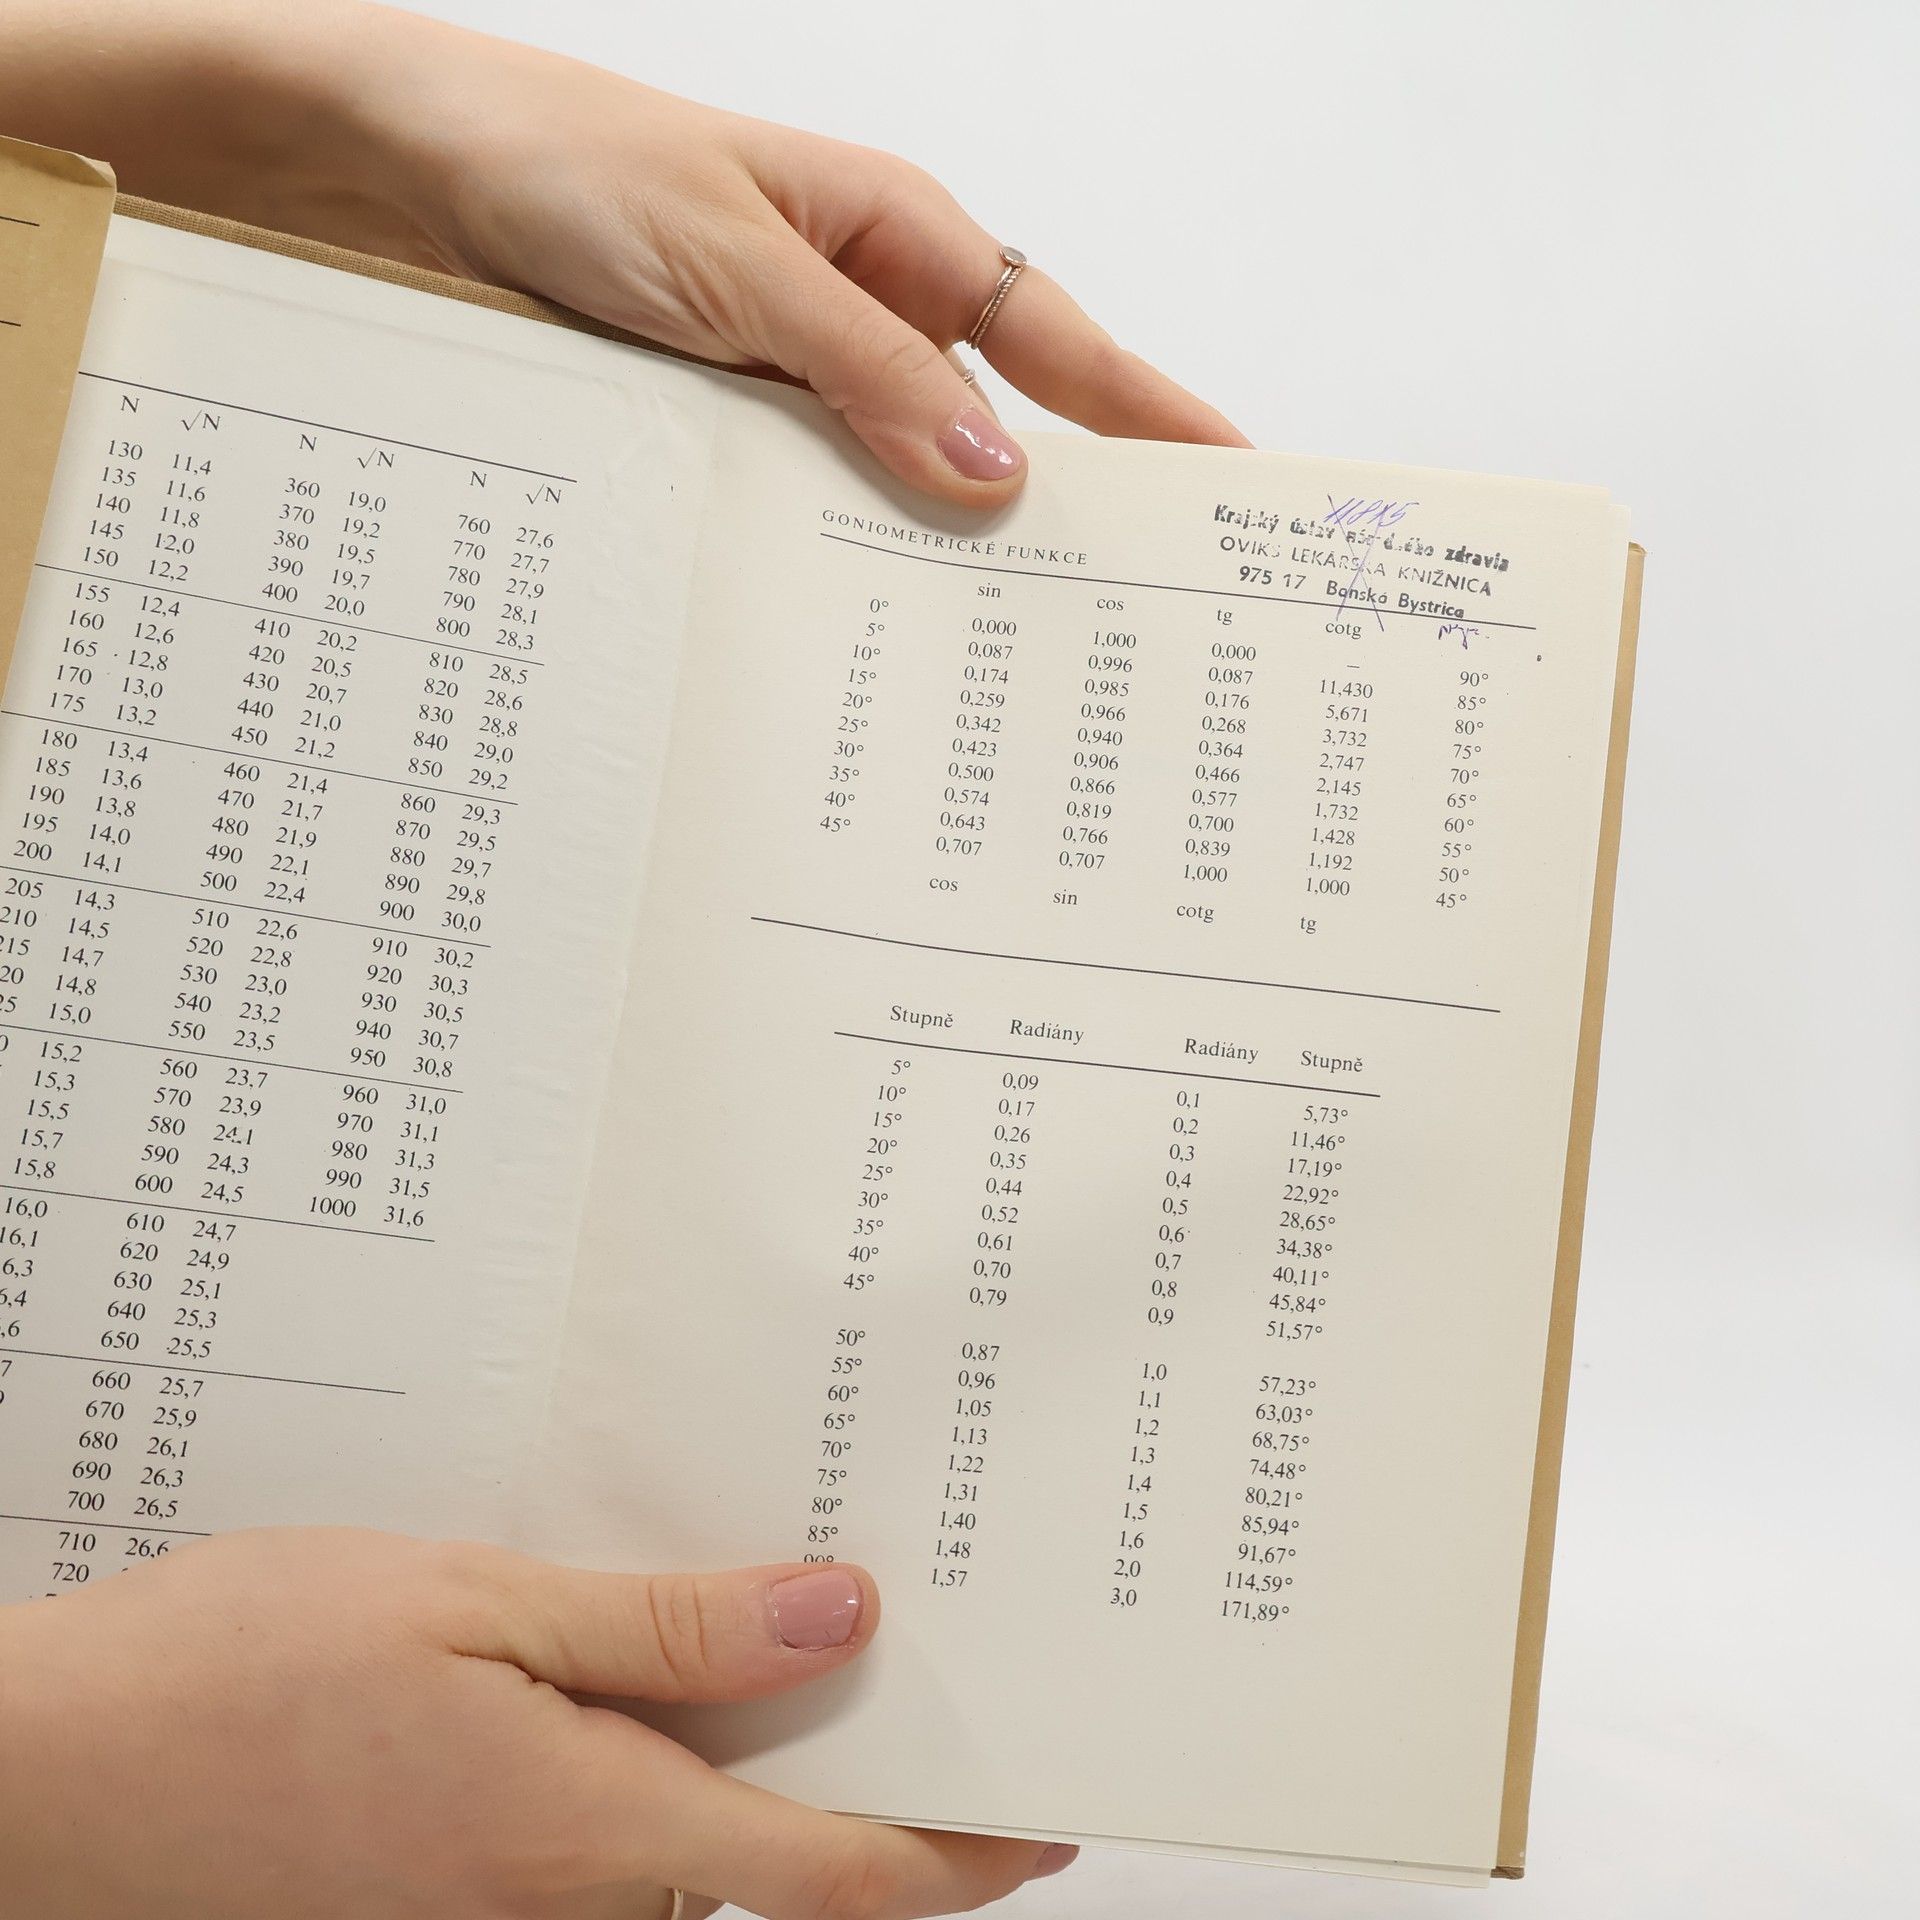 N √N N √N N √N
130 11,4 360 19,0 760 27,6
135 11,6 370 19,2 770 27,7
140 11,8 380 19,5 780 27,9
145 12,0 390 19,7 790 28,1
150 12,2 400 20,0 800 28,3
155 12,4 410 20,2 810 28,5
160 12,6 420 20,5 820 28,6
165 12,8 430 20,7 830 28,8
170 13,0 440 21,0 840 29,0
175 13,2 450 21,2 850 29,2
180 13,4 460 21,4 860 29,3
185 13,6 470 21,7 870 29,5
190 13,8 480 21,9 880 29,7
195 14,0 490 22,1 890 29,8
200 14,1 500 22,4 900 30,0
205 14,3 510 22,6 910 30,2
210 14,5 520 22,8 920 30,3
215 14,7 530 23,0 930 30,5
20 14,8 540 23,2 940 30,7
25 15,0 550 23,5 950 30,8
0 15,2 560 23,7 960 31,0
15,3 570 23,9 970 31,1
15,5 580 24,1 980 31,3
15,7 590 24,3 990 31,5
15,8 600 24,5 1000 31,6
16,0 610 24,7
16,1 620 24,9
6,3 630 25,1
6,4 640 25,3
,6 650 25,5
7 660 25,7
9 670 25,9
680 26,1
690 26,3
700 26,5
710 26,6
720
Krajský ústav národného zdravia
OVIKS LEKÁRSKA KNIŽNICA
975 17 Banská Bystrica
GONIOMETRICKÉ FUNKCE
sin cos tg cotg
0° 0,000 1,000 0,000 – 90°
5° 0,087 0,996 0,087 11,430 85°
10° 0,174 0,985 0,176 5,671 80°
15° 0,259 0,966 0,268 3,732 75°
20° 0,342 0,940 0,364 2,747 70°
25° 0,423 0,906 0,466 2,145 65°
30° 0,500 0,866 0,577 1,732 60°
35° 0,574 0,819 0,700 1,428 55°
40° 0,643 0,766 0,839 1,192 50°
45° 0,707 0,707 1,000 1,000 45°
cos sin cotg tg
Stupně Radiány Radiány Stupně
5° 0,09 0,1 5,73°
10° 0,17 0,2 11,46°
15° 0,26 0,3 17,19°
20° 0,35 0,4 22,92°
25° 0,44 0,5 28,65°
30° 0,52 0,6 34,38°
35° 0,61 0,7 40,11°
40° 0,70 0,8 45,84°
45° 0,79 0,9 51,57°
50° 0,87 1,0 57,23°
55° 0,96 1,1 63,03°
60° 1,05 1,2 68,75°
65° 1,13 1,3 74,48°
70° 1,22 1,4 80,21°
75° 1,31 1,5 85,94°
80° 1,40 1,6 91,67°
85° 1,48 2,0 114,59°
90° 1,57 3,0 171,89°